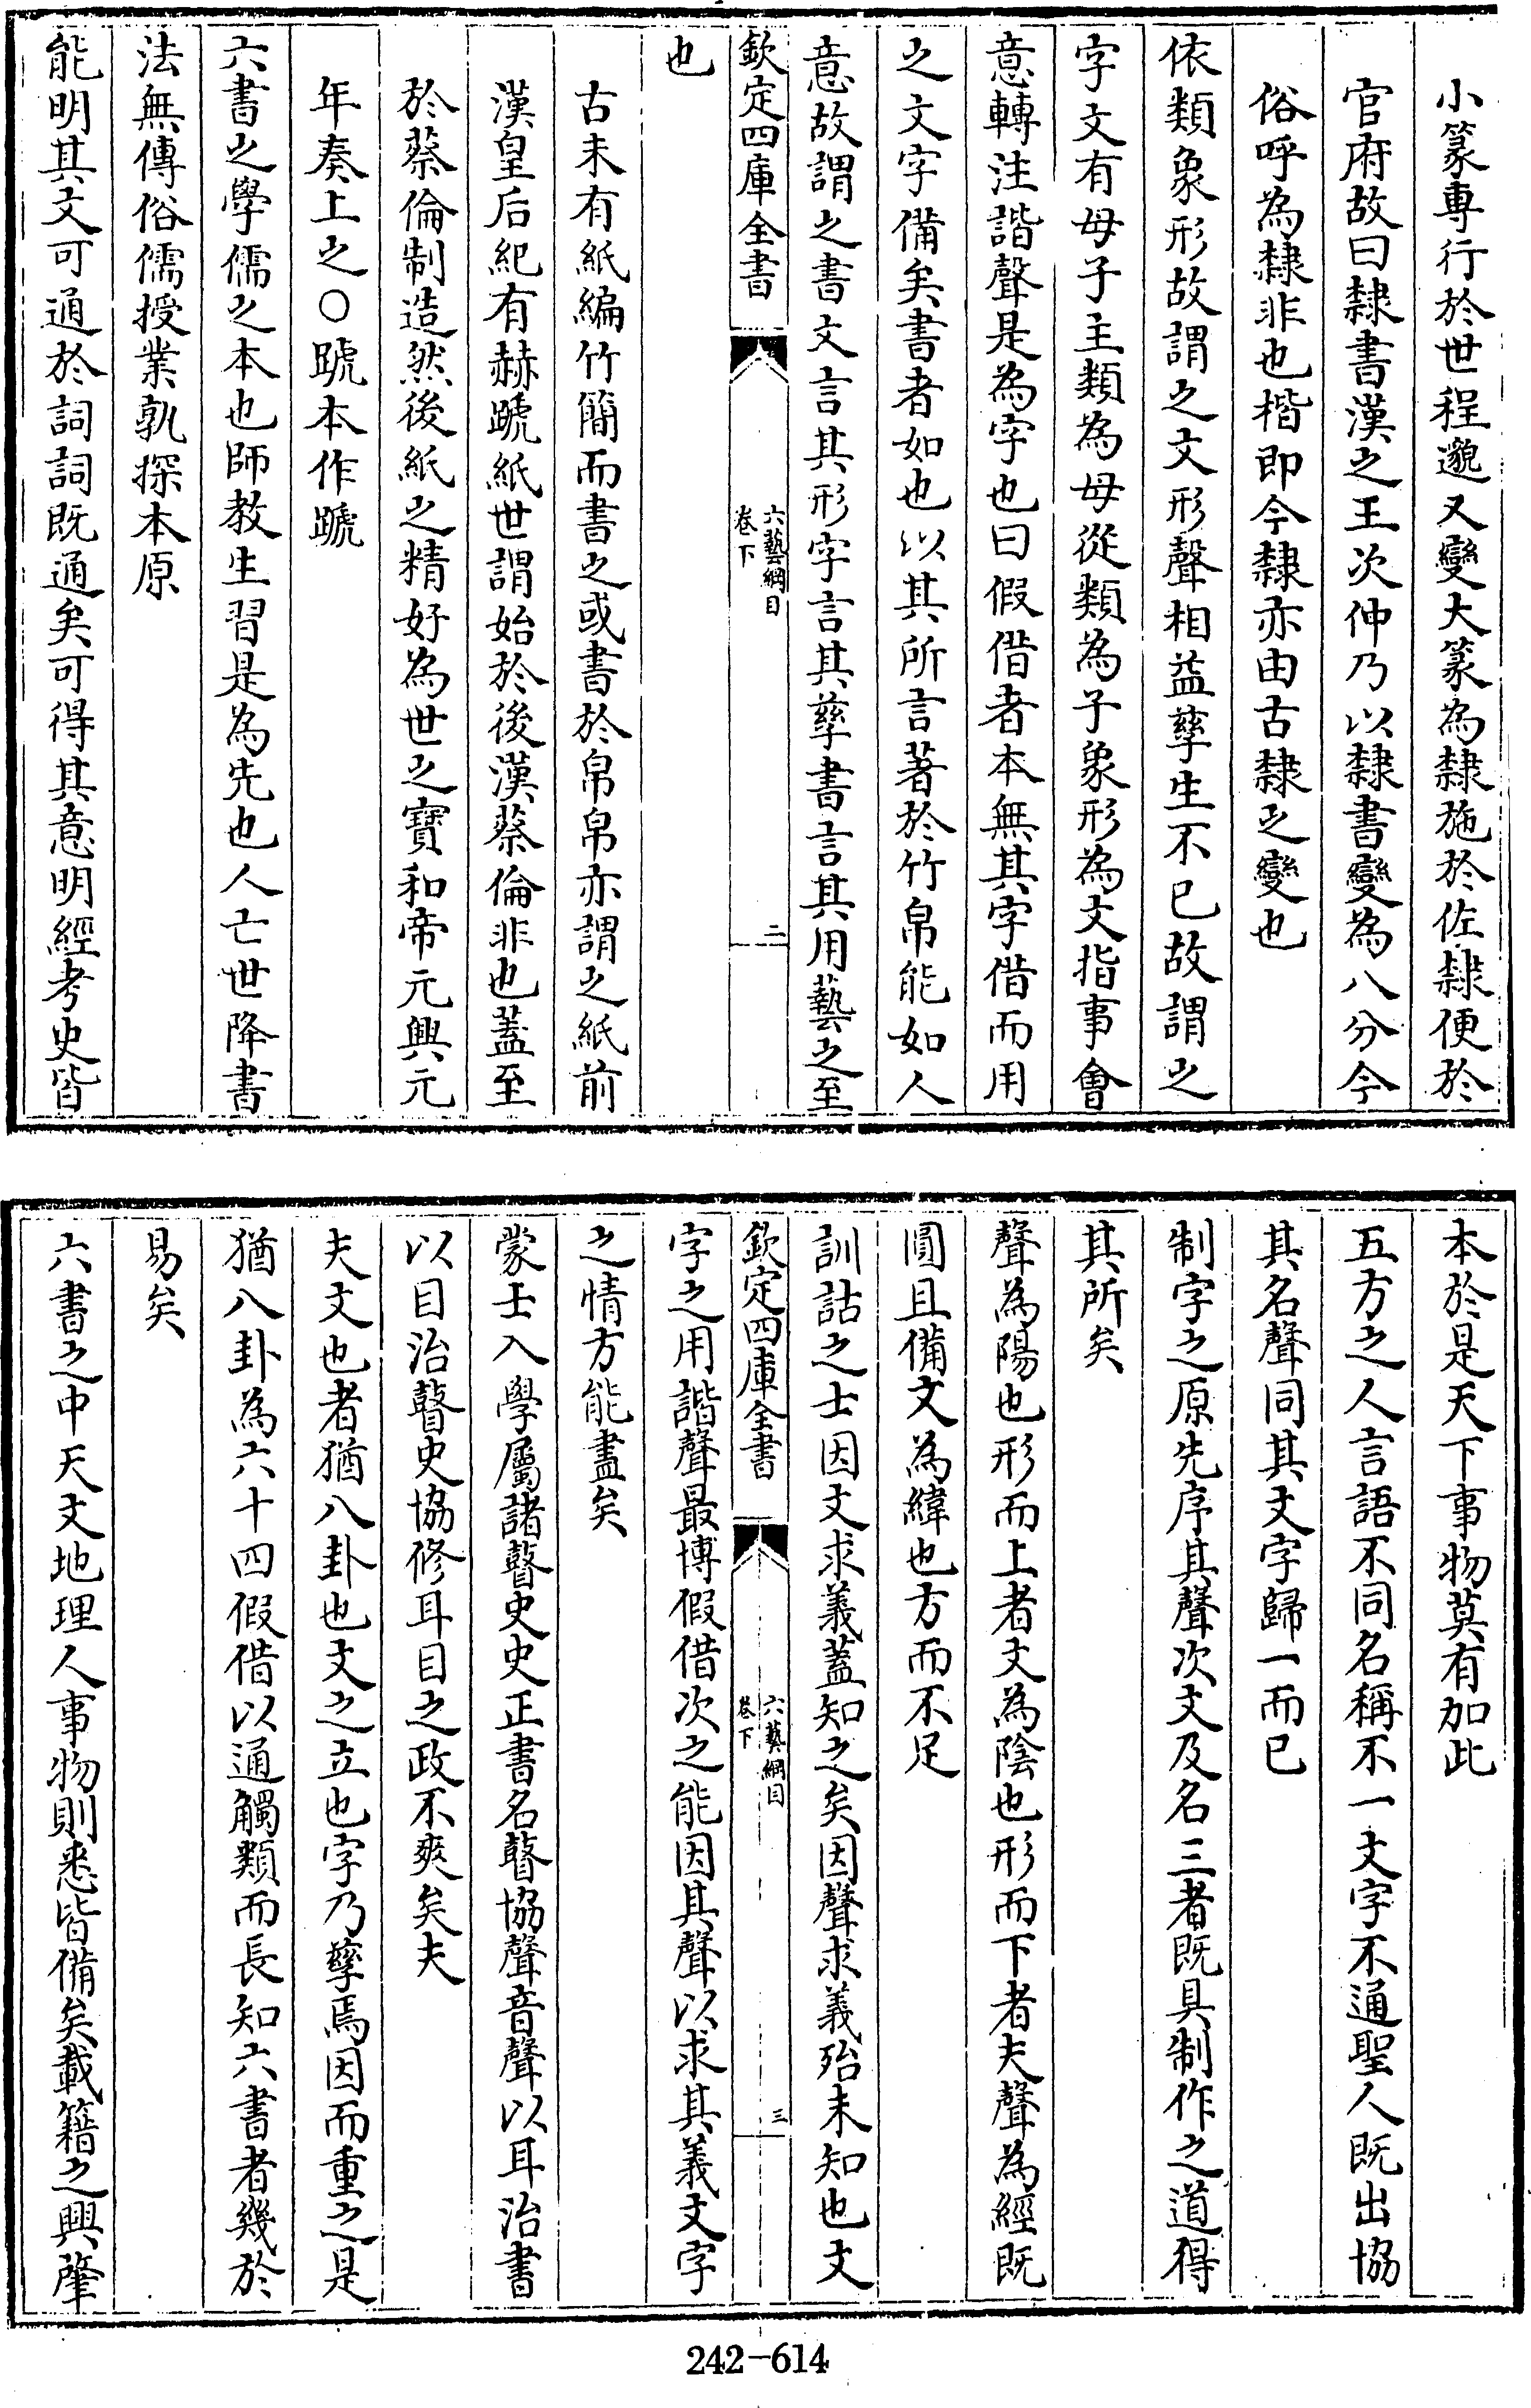 小篆專行於世程邈又變大篆為隸施於佐隸便於
官府故曰隸書漢之王次仲乃以隸書變為八分今
俗呼為隸非也楷即今隸亦由古隸之變也
依類象形故謂之文形聲相益孳生不已故謂之
字文有母子主類為母從類為子象形為文指事會
意轉注諧聲是為字也曰假借者本無其字借而用
之文字備矣書者如也以其所言著於竹帛能如人
意故謂之書文言其形字言其孳書言其用藝之至
欽定四庫全書
六藝綱目
卷下
二
也
古未有紙編竹簡而書之或書於帛帛亦謂之紙前
漢皇后紀有赫蹏紙世謂始於後漢蔡倫非也蓋至
於蔡倫制造然後紙之精好為世之寶和帝元興元
年奏上之○蹏本作蹏
六書之學儒之本也師教生習是為先也人亡世降書
法無傳俗儒授業孰探本原
能明其文可通於詞詞既通矣可得其意明經考史皆
本於是天下事物莫有加此
五方之人言語不同名稱不一文字不通聖人既出協
其名聲同其文字歸一而已
制字之原先序其聲次文及名三者既具制作之道得
其所矣
聲為陽也形而上者文為陰也形而下者夫聲為經既
圓且備文為緯也方而不足
訓詁之士因文求義蓋知之矣因聲求義殆未知也文
欽定四庫全書
六藝綱目
卷下
三
字之用諧聲最博假借次之能因其聲以求其義文字
之情方能盡矣
蒙士入學屬諸瞽史史正書名瞽協聲音聲以耳治書
以目治瞽史協修耳目之政不爽矣夫
夫文也者猶八卦也文之立也字乃孳焉因而重之是
猶八卦為六十四假借以通觸類而長知六書者幾於
易矣
六書之中天文地理人事物則悉皆備矣載籍之興肇
242-614